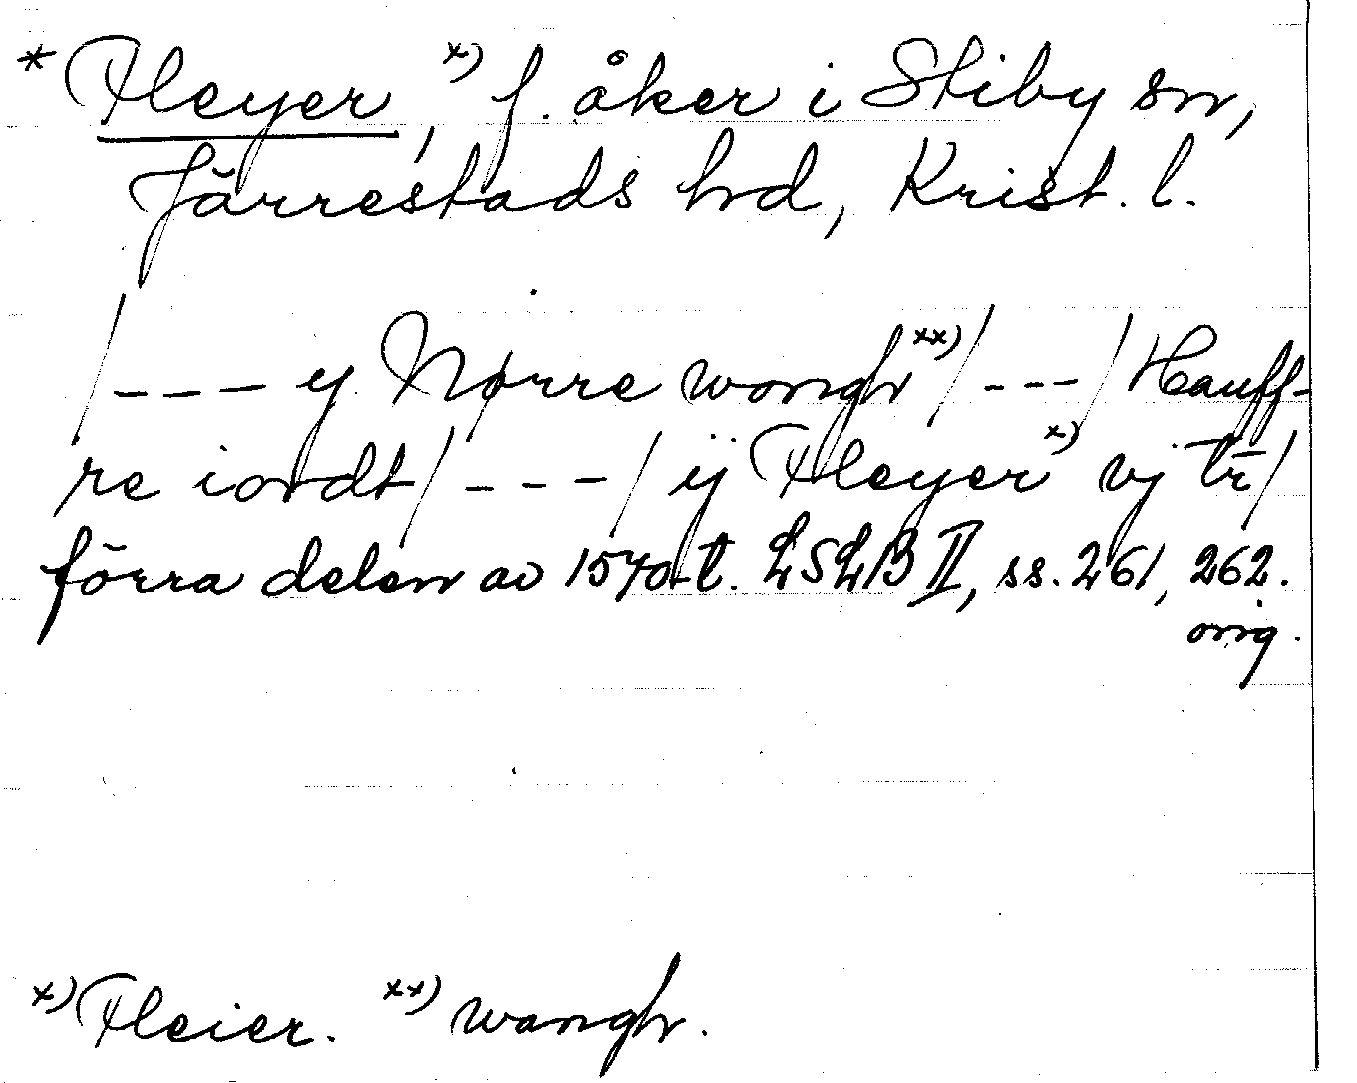 * Fleyer, x) f. åker i Stiby sn,
Järrestads hd, Krist. l.
/--- y Nørre wongh xx)/---/Hauff-
re iordt/---/ ij Fleyer x) vj tr/
förra delen av 1570-t. LSLB II, ss. 261, 262.
orig.
x) Fleier. xx) wangh.